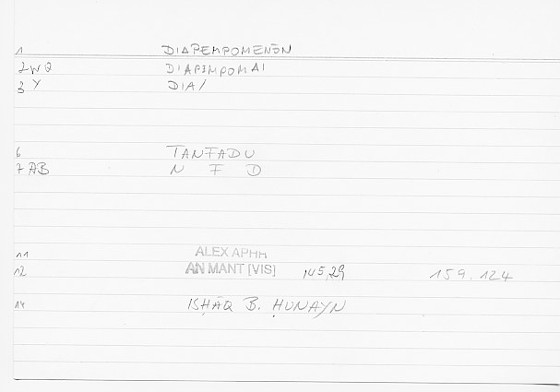 1 DIAPEMPOMENŌN
2 WQ DIAPEMPOMAI
3 Y DIA/
6 TANFADU
7 AB N F D
11 ALEX APHH
12 AN MANT [VIS] 145,29 159.124
14 ISḤĀQ B. ḤUNAYN